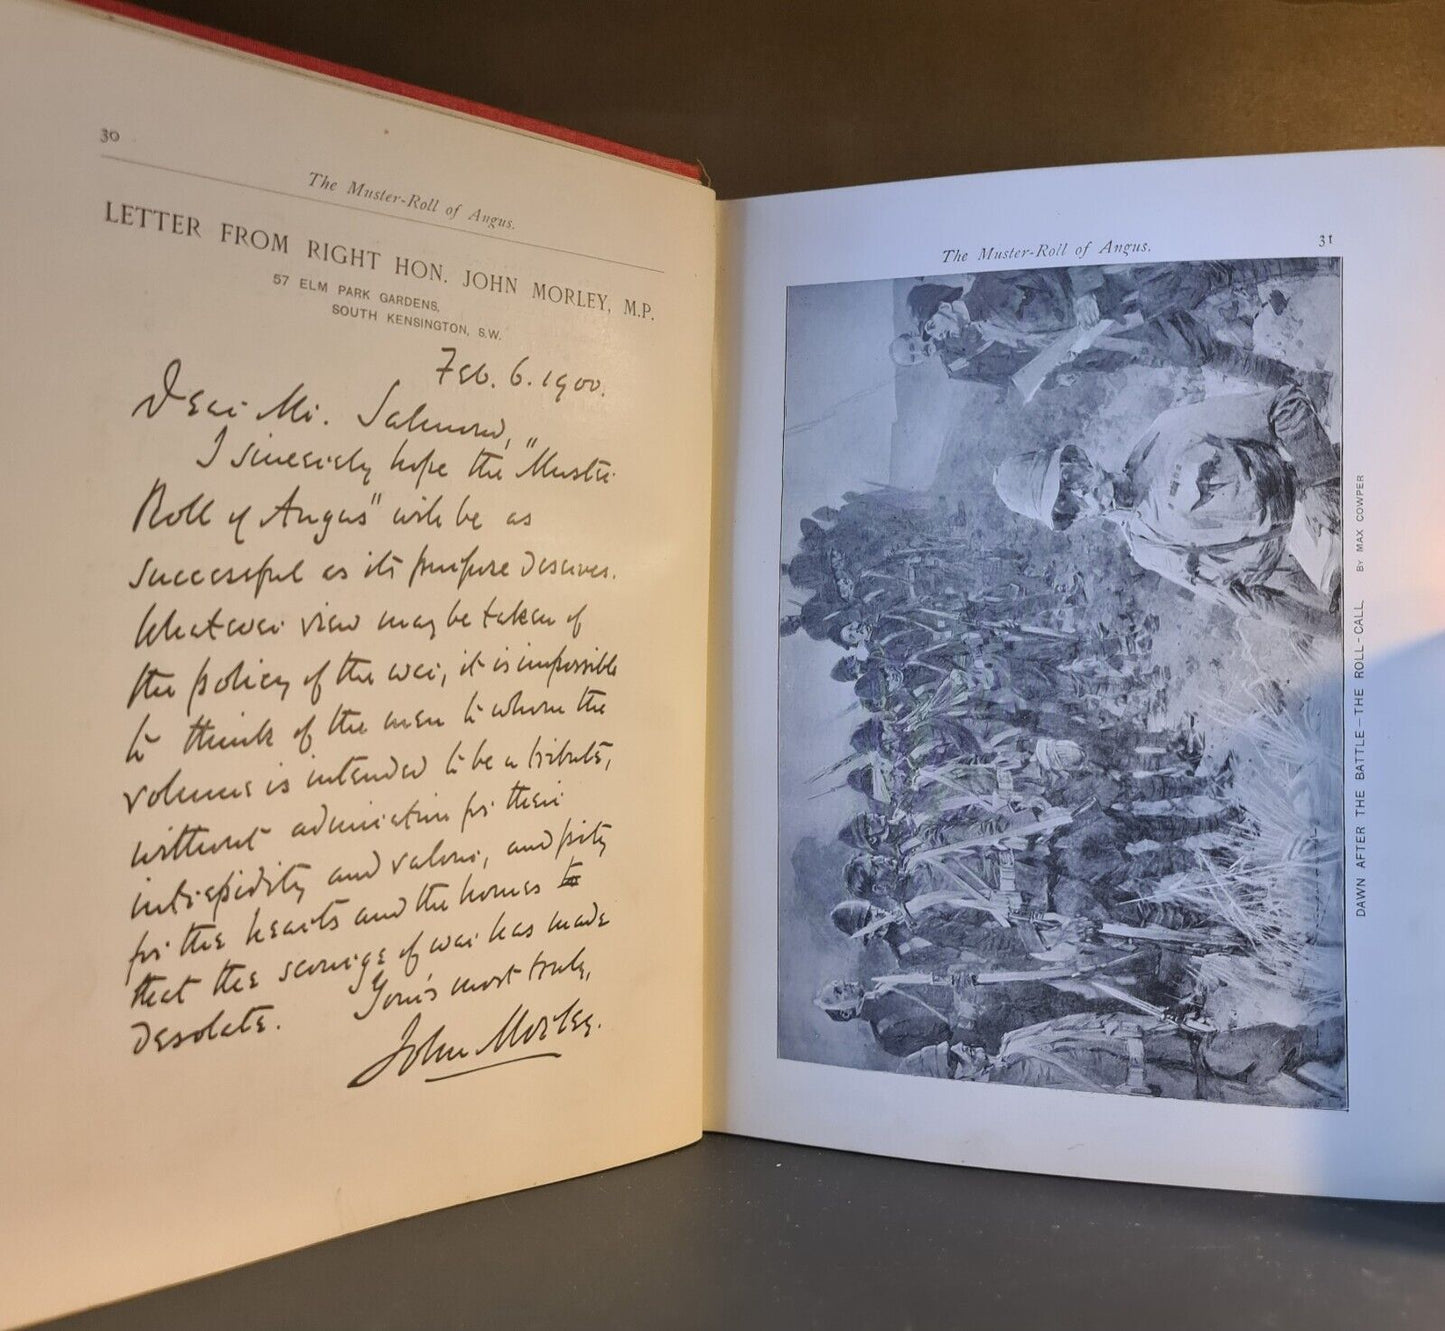 30
The Muster-Roll of Angus.
LETTER FROM RIGHT HON. JOHN MORLEY, M.P.
57 ELM PARK GARDENS,
SOUTH KENSINGTON, S.W.
Feb. 6. 1900.
Dear Mr. Salmond,
I sincerely hope the "Muster
Roll of Angus" will be as
successful as its purpose deserves.
Whatever view may be taken of
the policy of the war, it is impossible
to think of the men to whom the
volume is intended to be a tribute,
without admiration for their
intrepidity and valour, and pity
for the hearts and the homes to
that the scourge of war has made
desolate.
Yours most truly,
John Morley.
The Muster-Roll of Angus.
31
DAWN AFTER THE BATTLE–THE ROLL-CALL BY MAX COWPER